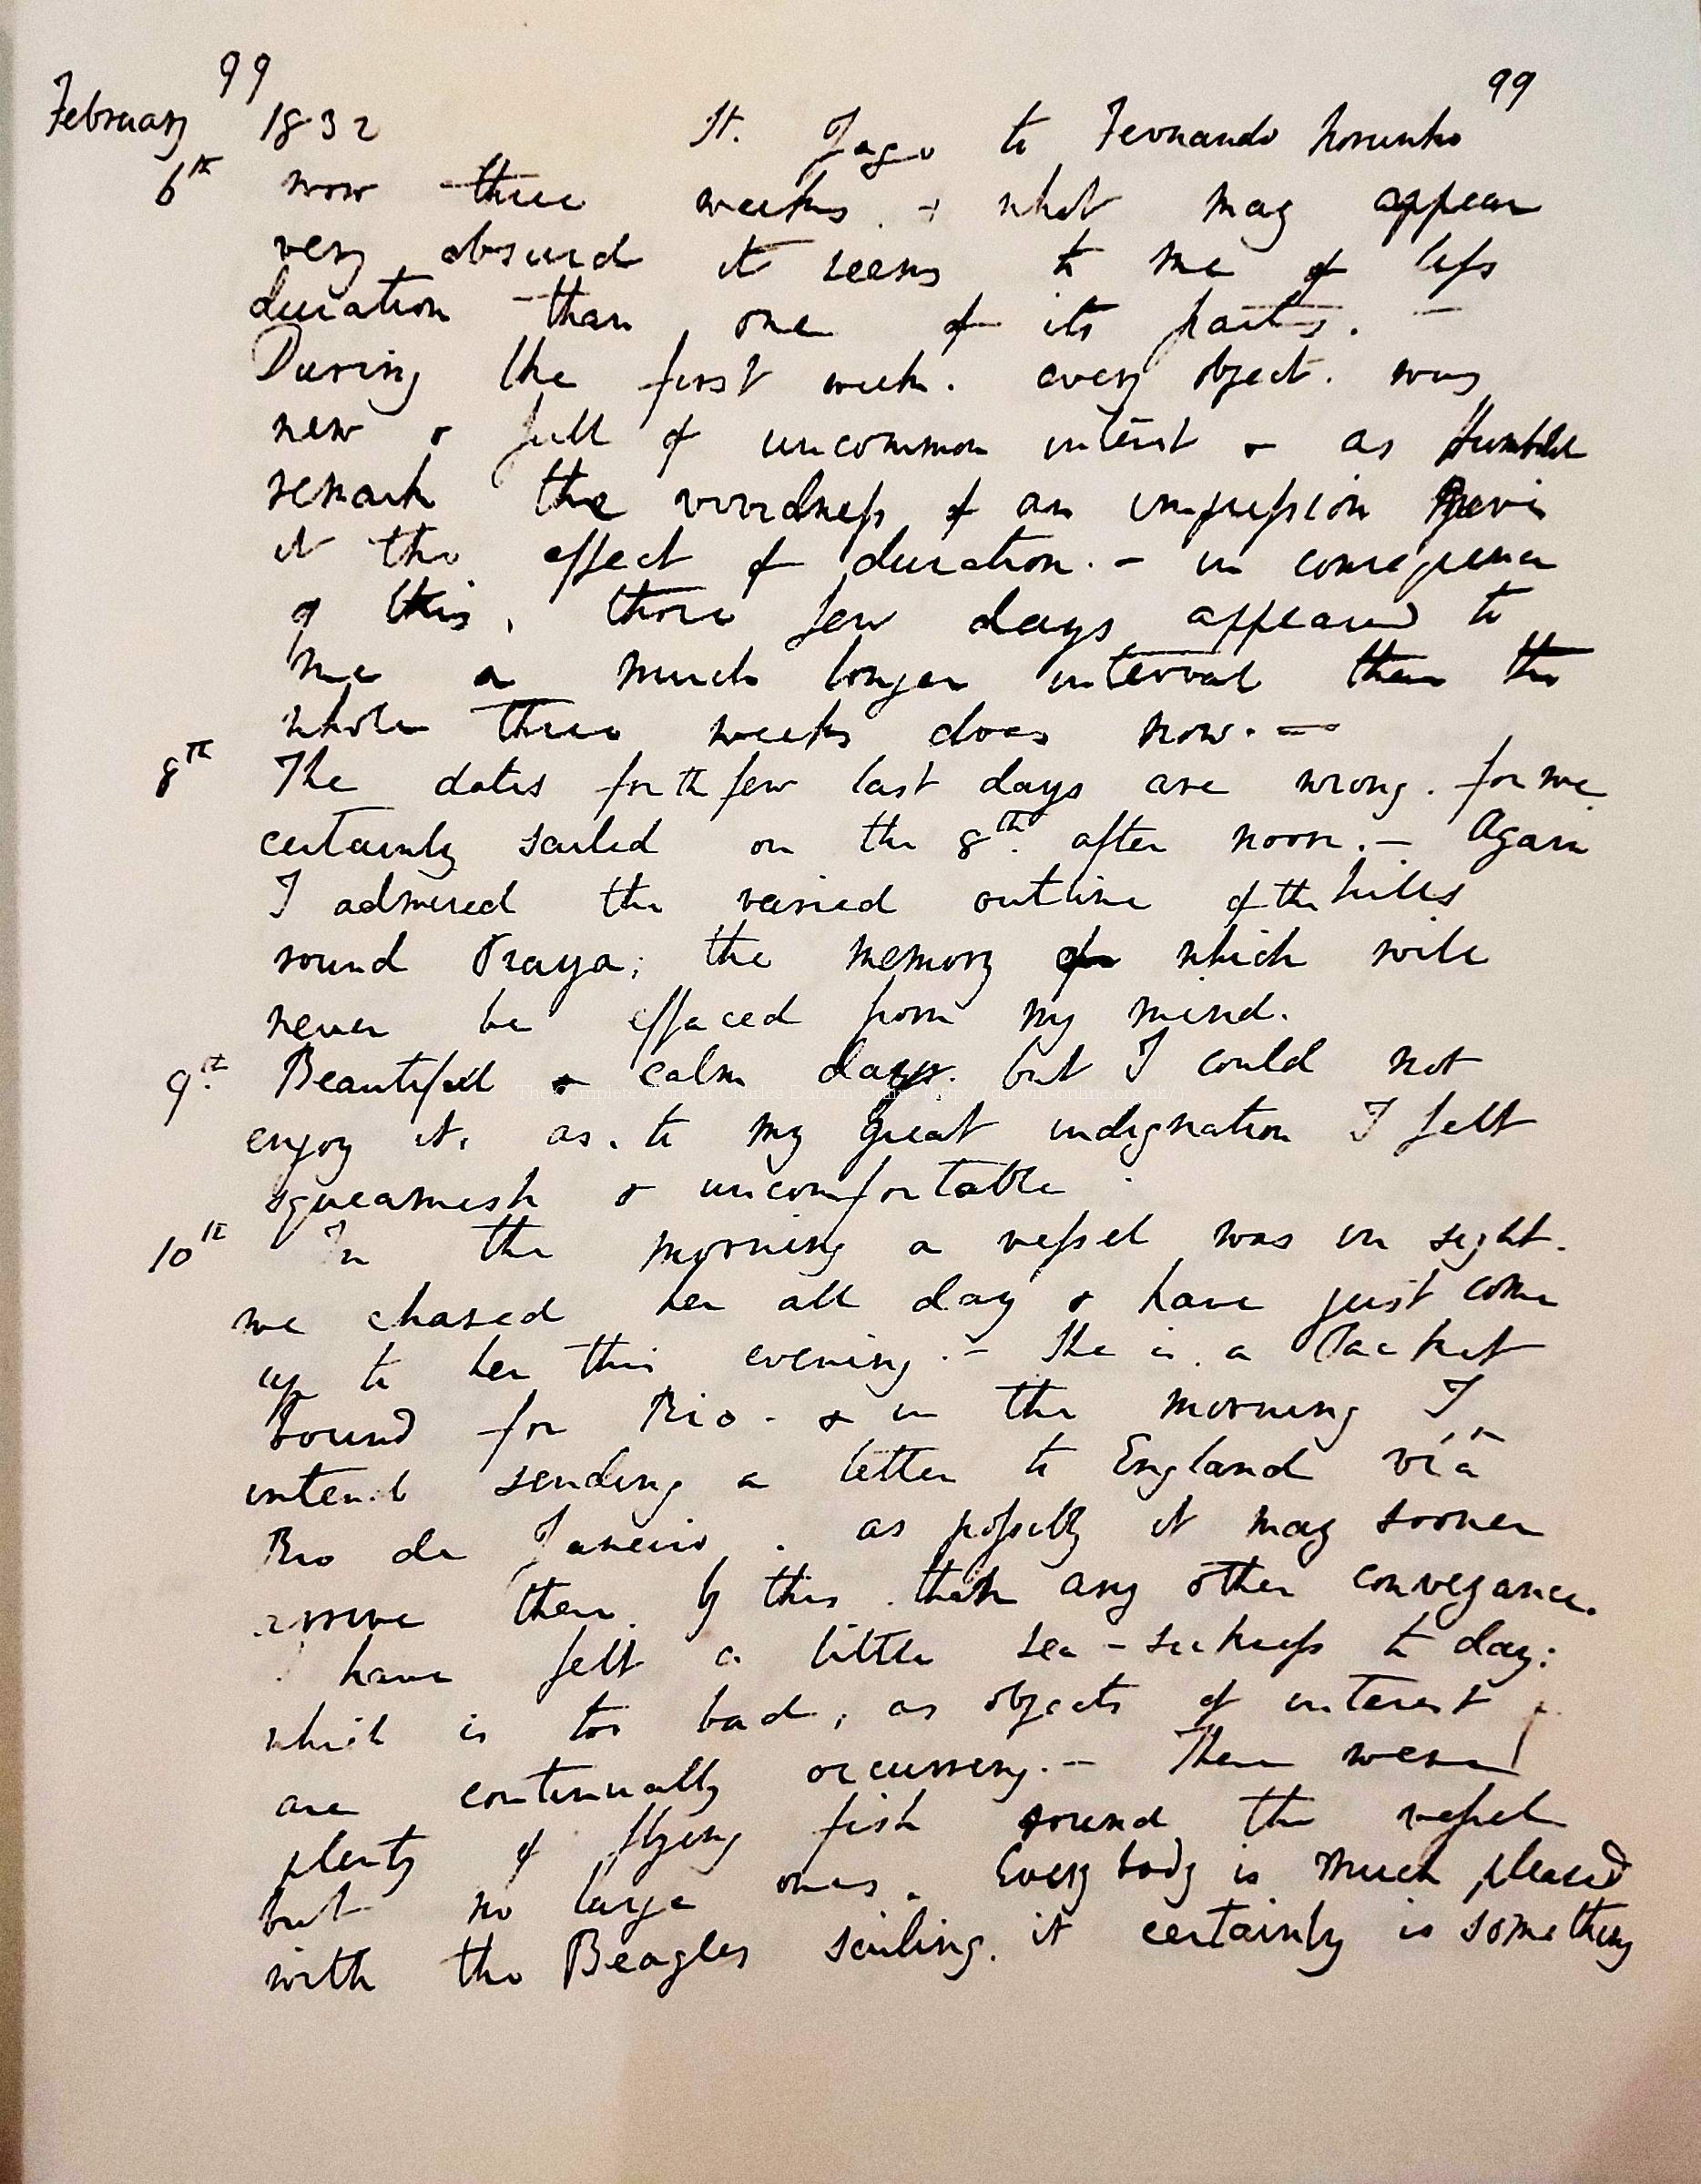 99
99
February 1832 St. Jago to Fernando Noronho
6th now three weeks. & what may appear
very absurd it seems to me of less
duration than one of its parts. —
During the first week. every object. was
new & full of uncommon interest & as
remark the vividness of an impression
it the effect of duration. — in consequence
of this, those few days appeared to
me a much longer interval than the
whole three weeks does now. —
8th The dates for the few last days are wrong. for we
certainly sailed on the 8th. after noon. — Again
I admired the varied outline of the hills
round Praya; the memory of which will
never be effaced from my mind.
9th. Beautiful & calm day. but I could not
enjoy it, as. to my great indignation I felt
squeamish & uncomfortable.
10th In the morning a vessel was in sight.
we chased her all day & have just come
up to her this evening. — She is a Packet
bound for Rio. & in the morning I
intend sending a letter to England via
Rio de Janeiro. as possibly it may sooner
arrive there by this than any other conveyance.
I have felt a little sea-sickness to day:
which is too bad, as objects of interest
are continually occurring. — There were
plenty of flying fish round the vessel
but no large ones. Every body is much pleased
with the Beagles sailing. it certainly is something